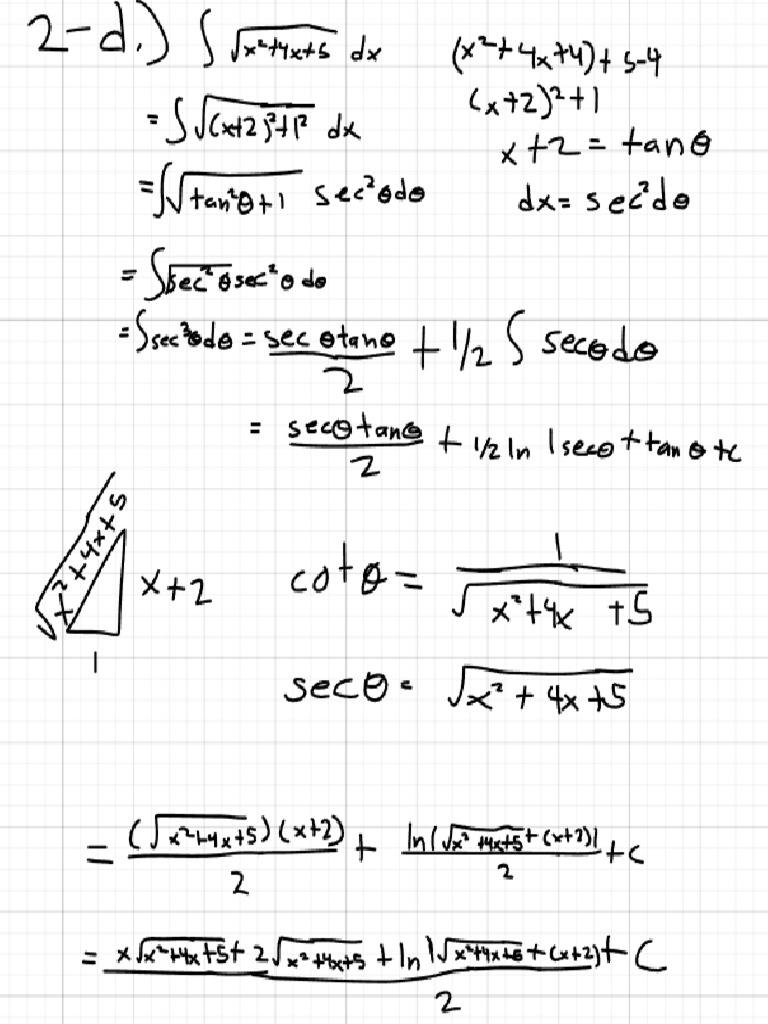 2-d.) ∫ √(x²+4x+5) dx
(x²+4x+4)+5-4
= ∫ √((x+2)²+1²) dx
(x+2)²+1
x+2 = tanθ
= ∫ √(tan²θ+1) sec²θdθ
dx = sec²dθ
= ∫ √(sec²θ) sec²θ dθ
= ∫ sec³θdθ = secθtanθ/2 + 1/2 ∫ secθdθ
= secθtanθ/2 + 1/2 ln |secθ + tanθ +c
√(x²+4x+5)
x+2
1
cotθ = 1/√(x²+4x +5)
secθ = √(x²+4x+5)
= (√(x²+4x+5))(x+2)/2 + ln(√(x²+4x+5)+(x+2)|/2 +c
= (x√(x²+4x+5) + 2√(x²+4x+5) + ln|√(x²+4x+5)+(x+2))/2 + C